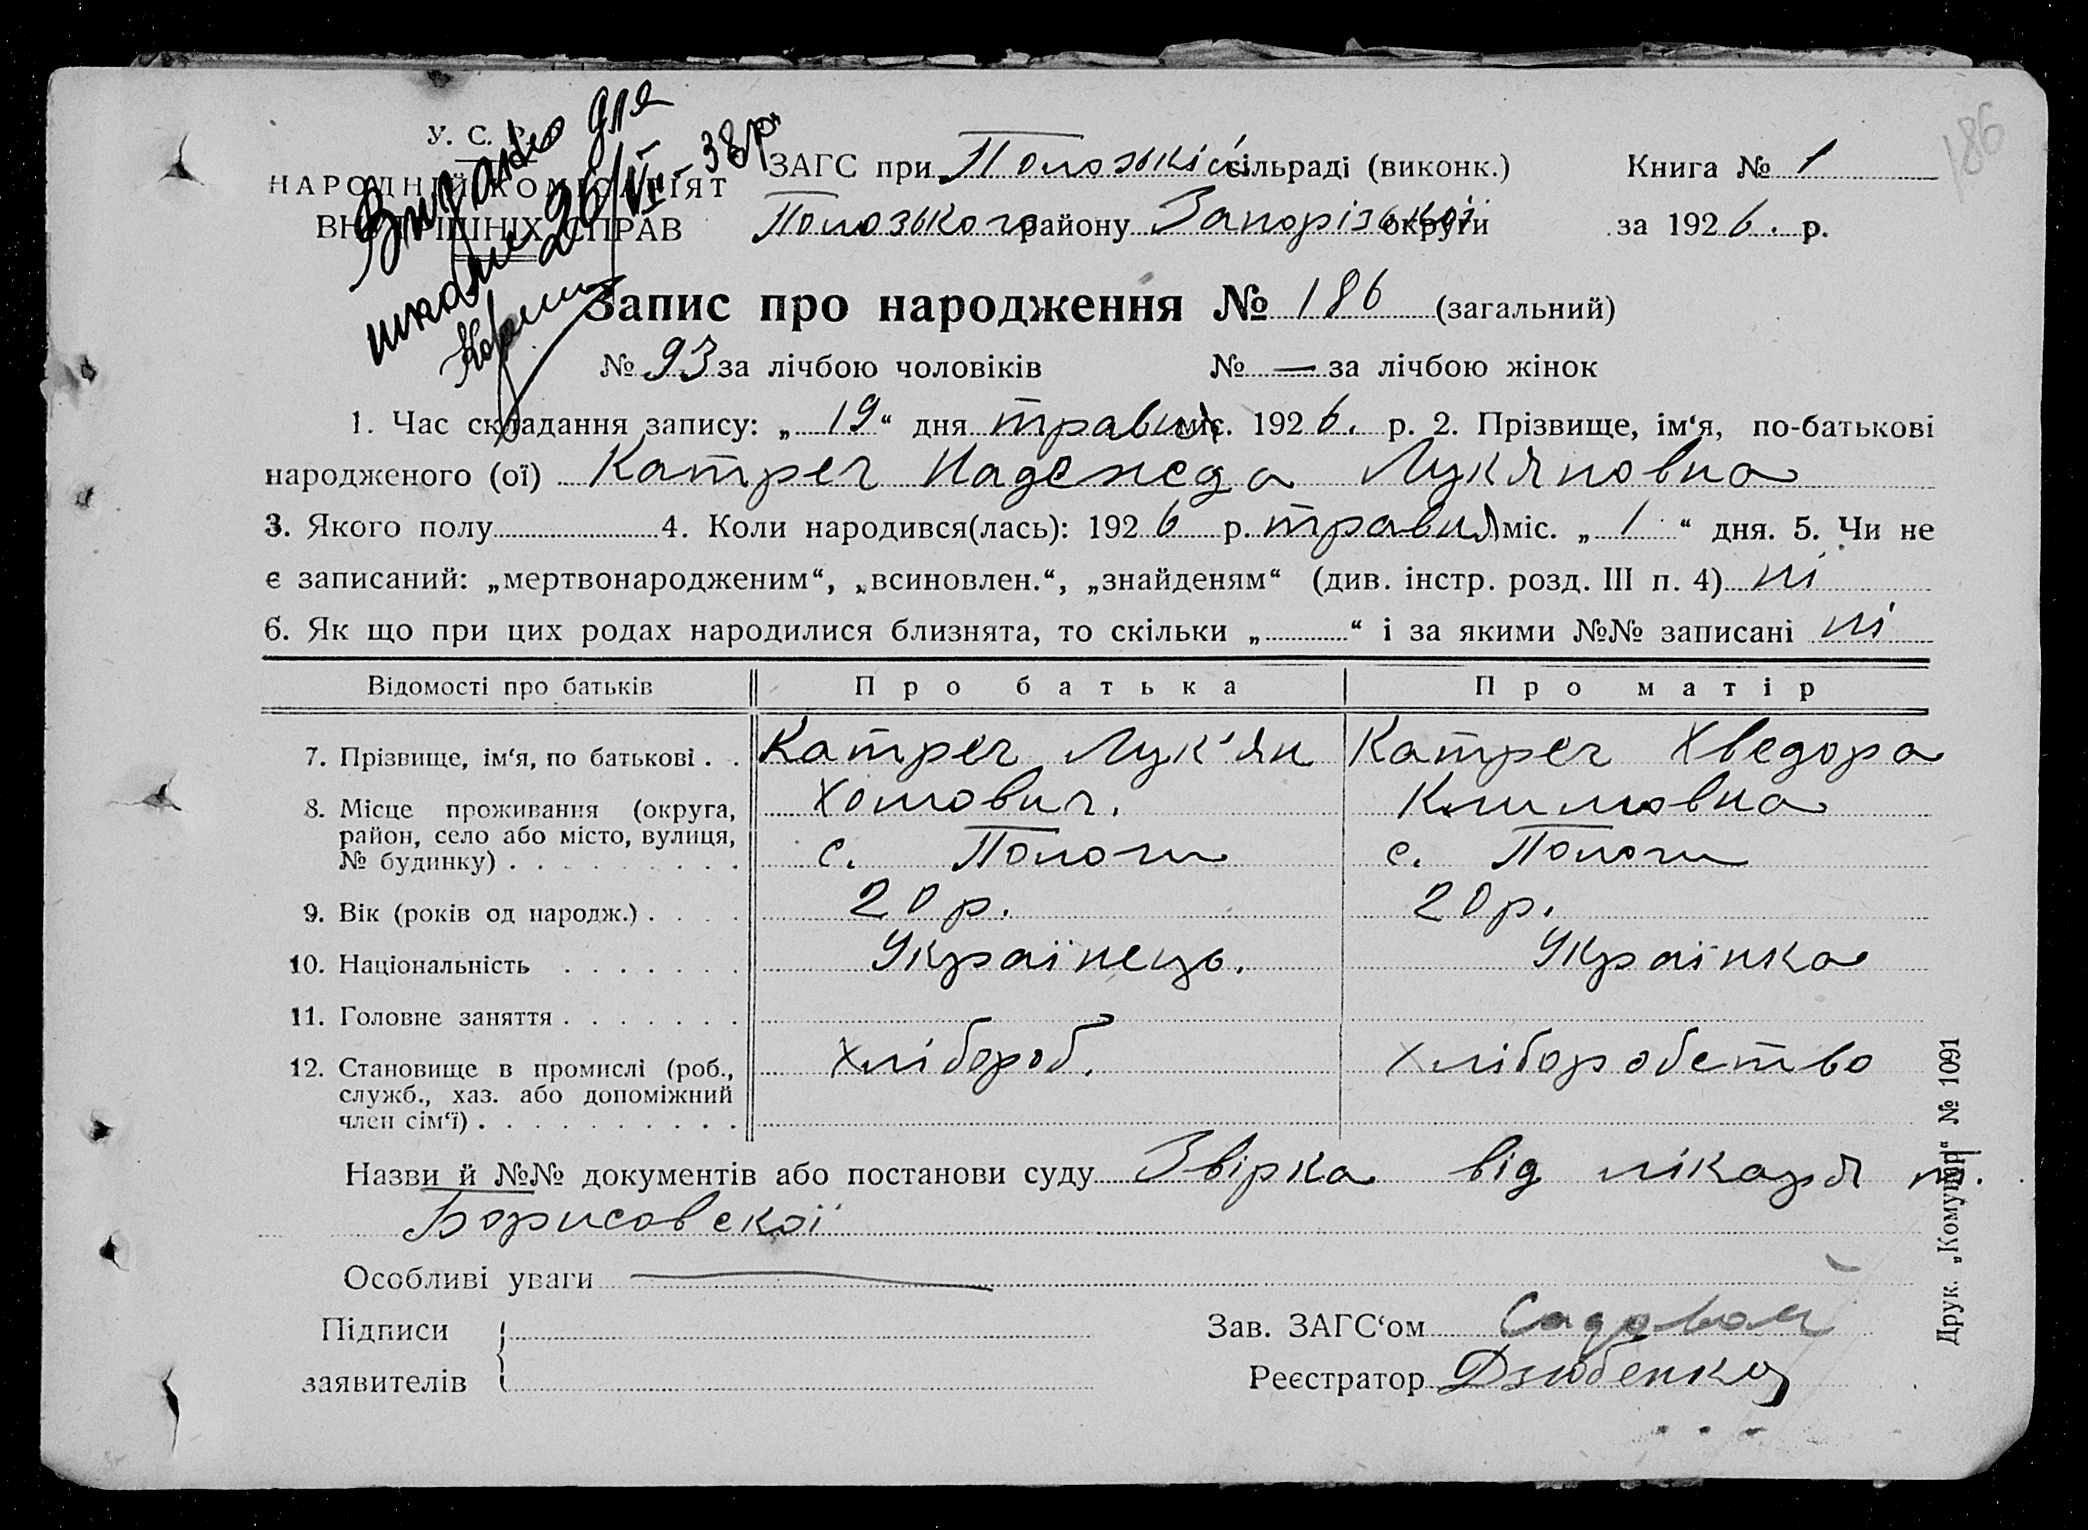 186
У. С. Р. Р.
НАРОДНІЙ КОМІСАРІЯТ
ВНУТРІШНІХ СПРАВ
Видано для
школи 26/VI– 38р.
ЗАГС при Полозькій сільраді (виконк.) Книга № 1
Полозького району Запорізької округи за 1926. р.
Запис про народження № 186 (загальний)
№ 93 за лічбою чоловіків № — за лічбою жінок
1. Час складання запису: „19“ дня травня міс. 1926. р. 2. Прізвище, ім‘я, по-батькові
народженого (ої) Катреч Надежда Лукяновна
3. Якого полу 4. Коли народився(лась): 1926 р. травня міс. „1“ дня. 5. Чи не
є записаний: „мертвонародженим“, „всиновлен.“, „знайденям“ (див. інстр. розд. III п. 4) ні
6. Як що при цих родах народилися близнята, то скільки „ “ і за якими №№ записані ні
Відомості про батьків Про батька Про матір
7. Прізвище, ім‘я, по батькові . . Катреч Лук'ян Катреч Хведора
Хомович. Климовна
8. Місце проживання (округа,
район, село або місто, вулиця,
№ будинку) . . . . . . . . . с. Пологи с. Пологи
9. Вік (років од народж.) . . . . 20 р. 20 р.
10. Національність . . . . . . . Українець. Українка
11. Головне заняття . . . . . . .
12. Становище в промислі (роб., Хлібороб. Хліборобство
служб., хаз. або допоміжний
член сім‘ї) . . . . . . . . . .
Назви й №№ документів або постанови суду Звірка від лікаря
Борисовскої
Особливі уваги
Підписи
заявителів
Зав. ЗАГС‘ом
Реєстратор Дзюбенко
Друк. „Комунар“ № 1091